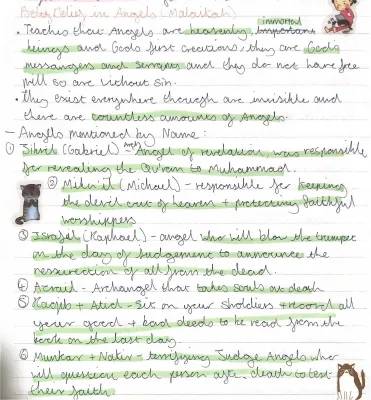 Belief in Angels (Malaikah)
• Teaches that Angels are heavenly, immortal
beings and Gods first creations. they are Gods
messangers and servants and they do not have free
will so are without sin.
• They exist everywhere though are invisible and
there are countless amounts of Angels.
– Angels mentioned by Name:
① Jibril (Gabriel) - Angel of revelation, was responsible
for revealing the Qu'ran to Muhammad.
② Mika'il (Michael) - responsible for keeping
the devil out of heaven + protecting faithful
worshippers
③ Israfel (Raphael) - angel who will blow the trumpet
on the day of Judgement to announce the
ressurection of all from the dead.
④ Azrail - Archangel that takes souls on death
⑤ Raqib + Atid - Sit on your sholders + record all
your good + bad deeds to be read from the
book on the last day.
⑥ Munkar + Nakir - terrifying Judge Angels who
will question each person after death to test
their faith.